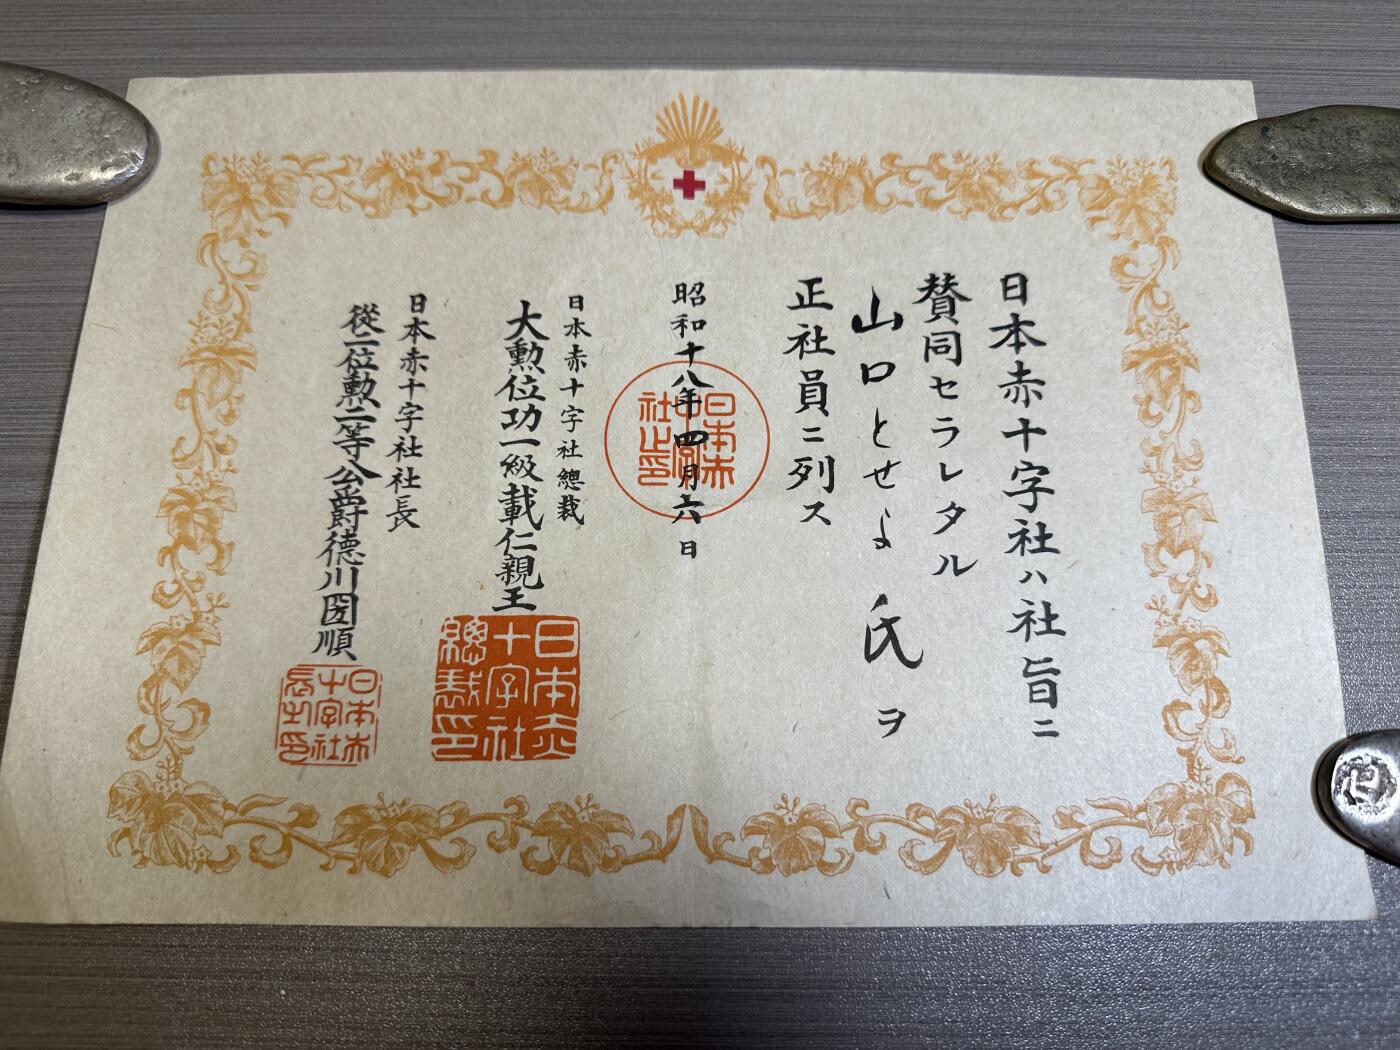 日本赤十字社ハ社旨ニ
賛同セラレタル
山口とせよ氏ヲ
正社員ニ列ス
昭和十八年四月六日
日本赤十字社之印
日本赤十字社總裁
大勲位功一級載仁親王
日本赤十字社總裁印
日本赤十字社社長
從二位勲二等公爵德川圀順
日本赤十字社長之印